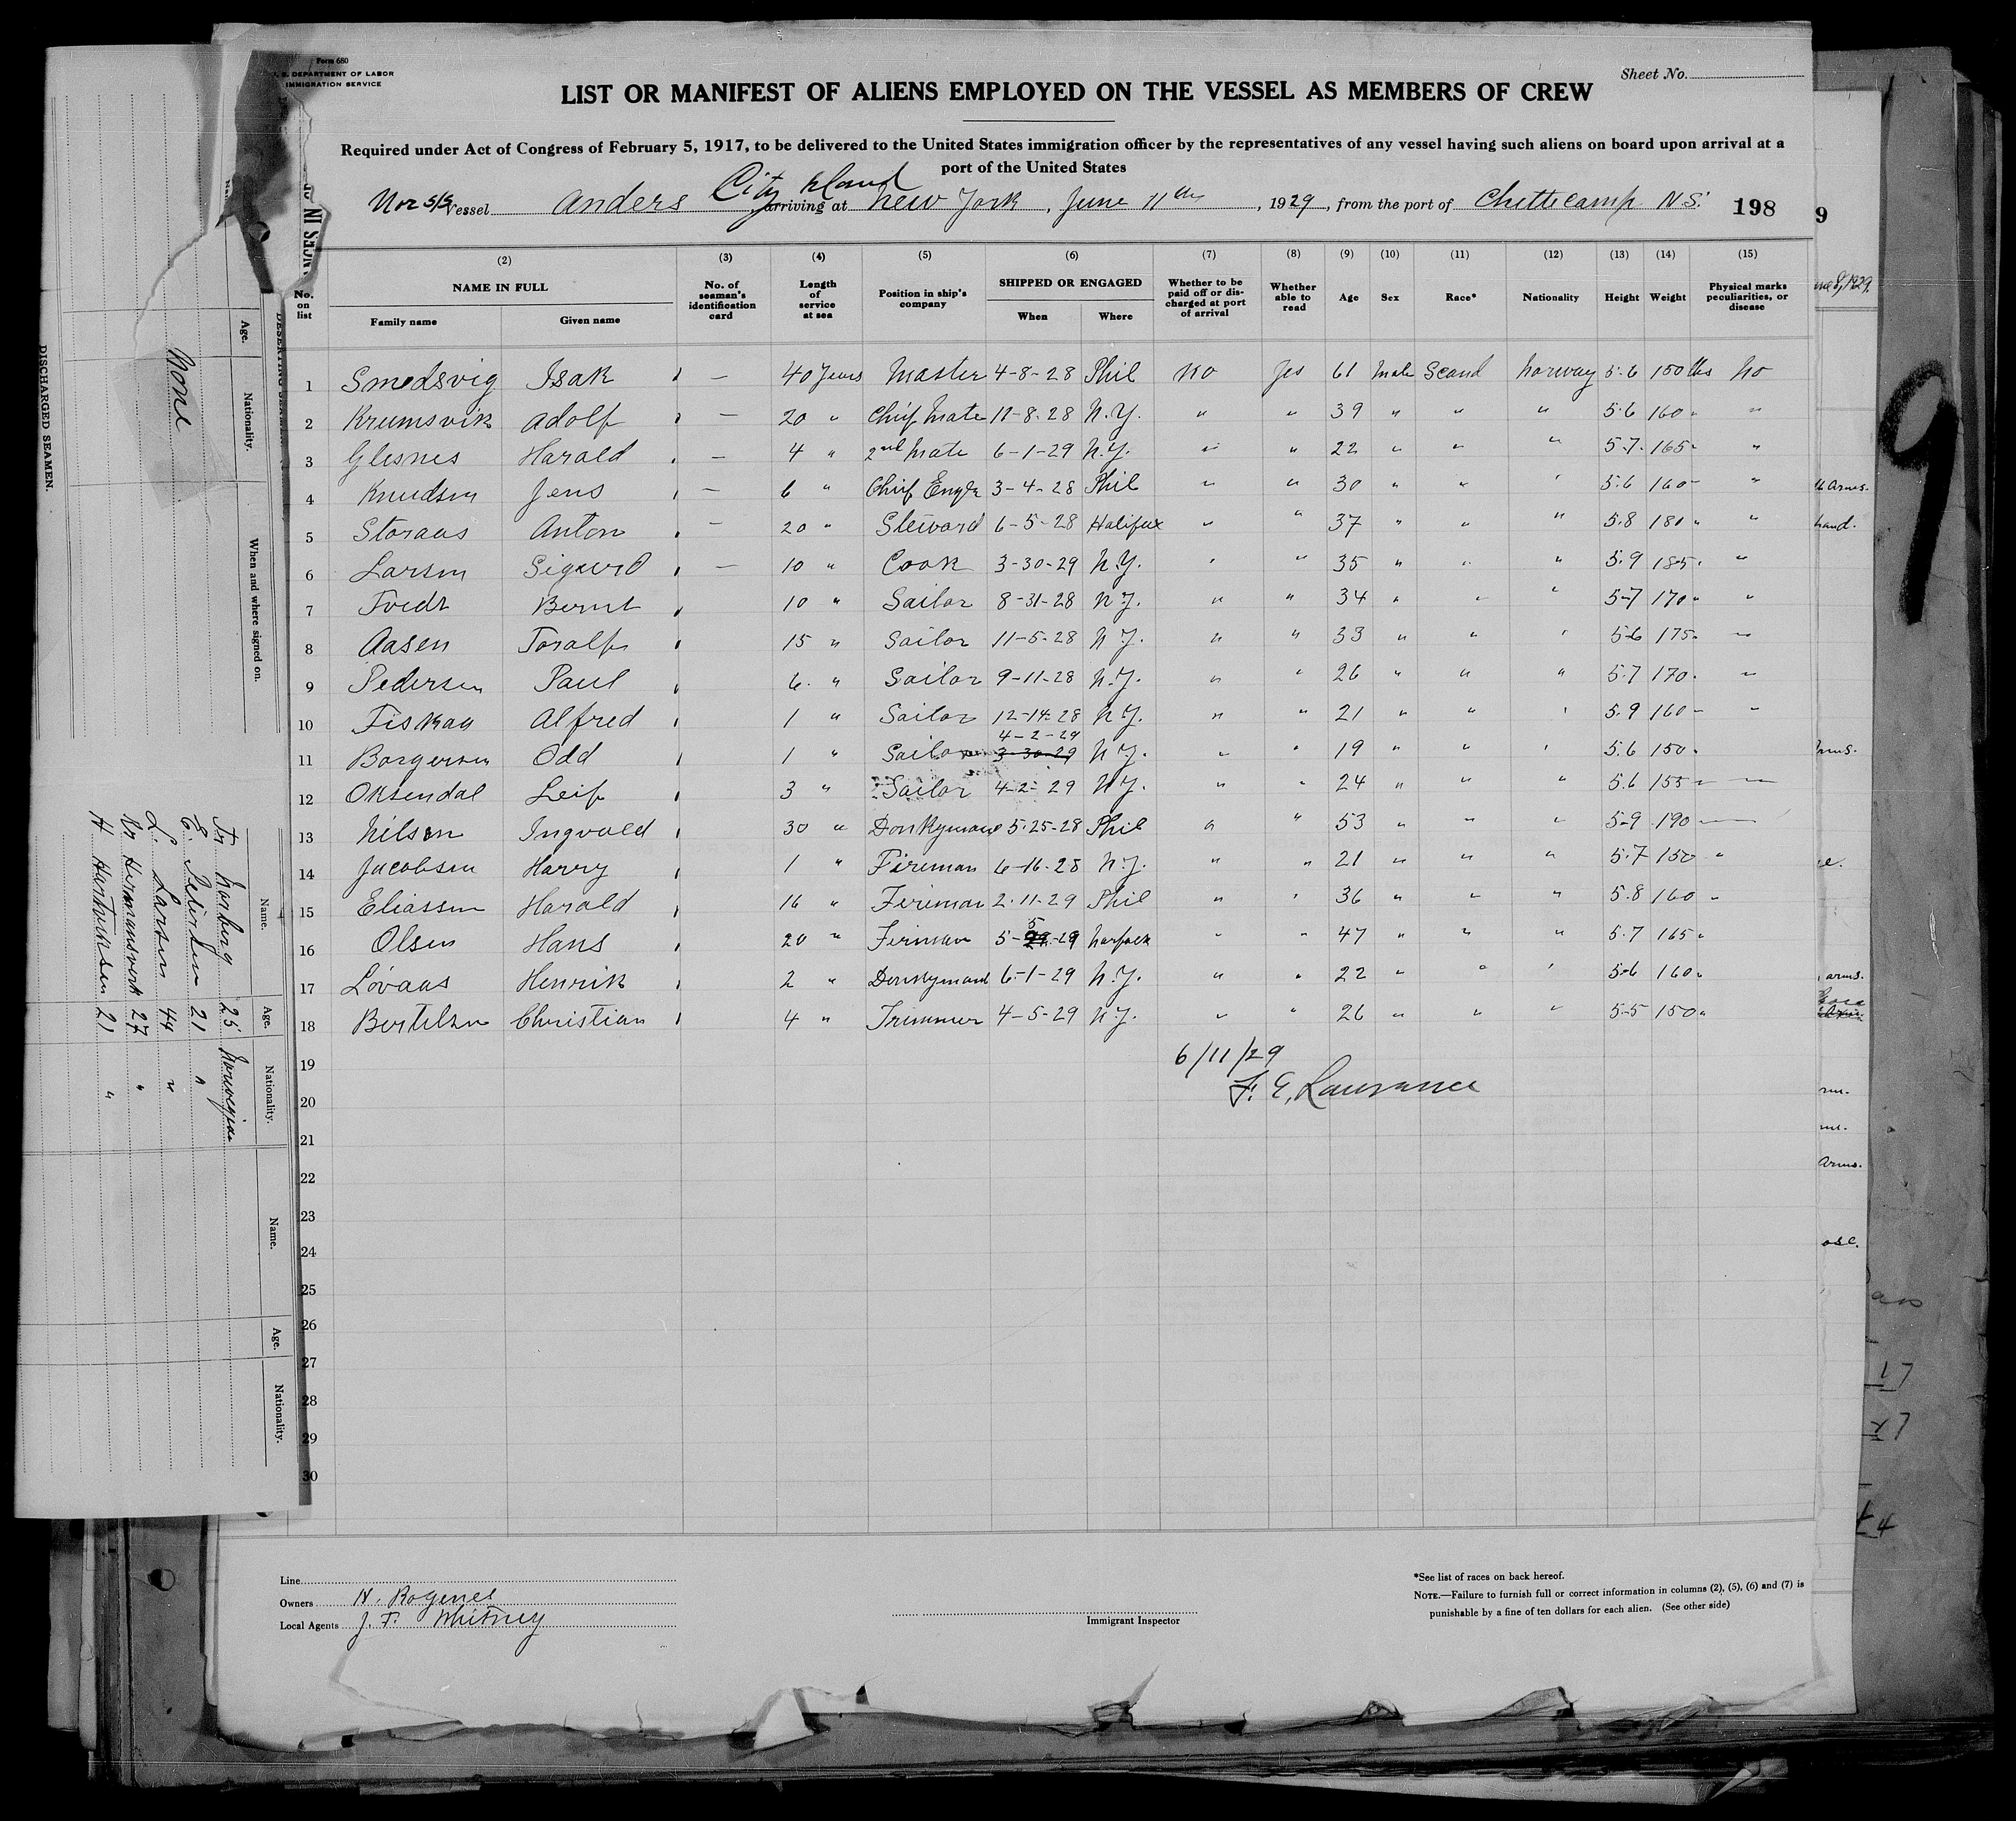 Form 680
U. S. DEPARTMENT OF LABOR
IMMIGRATION SERVICE
Sheet No.
LIST OR MANIFEST OF ALIENS EMPLOYED ON THE VESSEL AS MEMBERS OF CREW
Required under Act of Congress of February 5, 1917, to be delivered to the United States immigration officer by the representatives of any vessel having such aliens on board upon arrival at a
port of the United States
City Island
Nor S/S Vessel Anders arriving at New York, June 11th, 1929, from the port of Chetticamp N.S. 198
9
(2) (3) (4) (5) (6) (7) (8) (9) (10) (11) (12) (13) (14) (15)
No. on list NAME IN FULL Family name Given name No. of seaman's identification card Length of service at sea Position in ship's company SHIPPED OR ENGAGED When Where Whether to be paid off or discharged at port of arrival Whether able to read Age Sex Race* Nationality Height Weight Physical marks peculiarities, or disease
1 Smedsvig Isak — 40 Years Master 4-8-28 Phil No Yes 61 Male Scand Norway 5.6 150 lbs No
2 Krumsvik Adolf — 20 " Chief Mate 11-8-28 N.Y. " " 39 " " " 5.6 160 " "
3 Glesnes Harald — 4 " 2nd Mate 6-1-29 N.Y. " " 22 " " " 5.7 165 " "
4 Knudsen Jens — 6 " Chief Engr 3-4-28 Phil " " 30 " " " 5.6 160 " "
5 Storaas Anton — 20 " Steward 6-5-28 Halifax " " 37 " " " 5.8 180 " "
6 Larsen Sigurd — 10 " Cook 3-30-29 N.Y. " " 35 " " " 5.9 185 " "
7 Tvedt Bernt 10 " Sailor 8-31-28 N.Y. " " 34 " " " 5-7 170 " "
8 Aasen Toralf 15 " Sailor 11-5-28 N.Y. " " 33 " " " 5-6 175 " "
9 Pedersen Paul 6 " Sailor 9-11-28 N.Y. " " 26 " " " 5.7 170 " "
10 Fiskaa Alfred 1 " Sailor 12-14-28 N.Y. " " 21 " " " 5.9 160 " "
4-2-29
11 Borgersen Odd 1 " Sailor 3-30-29 N.Y. " " 19 " " " 5.6 150 "
12 Oksendal Leif 3 " Sailor 4-2-29 N.Y. " " 24 " " " 5.6 155 " —
13 Nilsen Ingvald 30 " Donkyman 5-25-28 Phil " " 53 " " " 5-9 190 —
14 Jacobsen Harry 1 " Fireman 6-16-28 N.Y. " " 21 " " " 5.7 150 "
15 Eliassen Harald 16 " Fireman 2-11-29 Phil " " 36 " " " 5.8 160 "
16 Olsen Hans 20 " Fireman 5-5-29 Norfolk " " 47 " " " 5.7 165 "
17 Lövaas Henrik 2 " Donkymand 6-1-29 N.Y. " " 22 " " " 5-6 160 "
18 Bertelsen Christian 4 " Trimmer 4-5-29 N.Y. " " 26 " " " 5-5 150 "
19 6/11/29
20 F. E. Lawrance
21
22
23
24
25
26
27
28
29
30
Line
Owners H. Rogenes
Local Agents J. F. Whitney
Immigrant Inspector
*See list of races on back hereof.
NOTE.—Failure to furnish full or correct information in columns (2), (5), (6) and (7) is
punishable by a fine of ten dollars for each alien. (See other side)
DISCHARGED SEAMEN.
Age. Nationality. When and where signed on.
None
Name. Age. Nationality. Name. Age. Nationality.
Norberg 25 Norwegian
E. Pedersen 21 "
L. Larsen 44 "
Hermansverk 27 "
H. Hartviksen 21 "
arms.
hand.
arms.
arms.
9